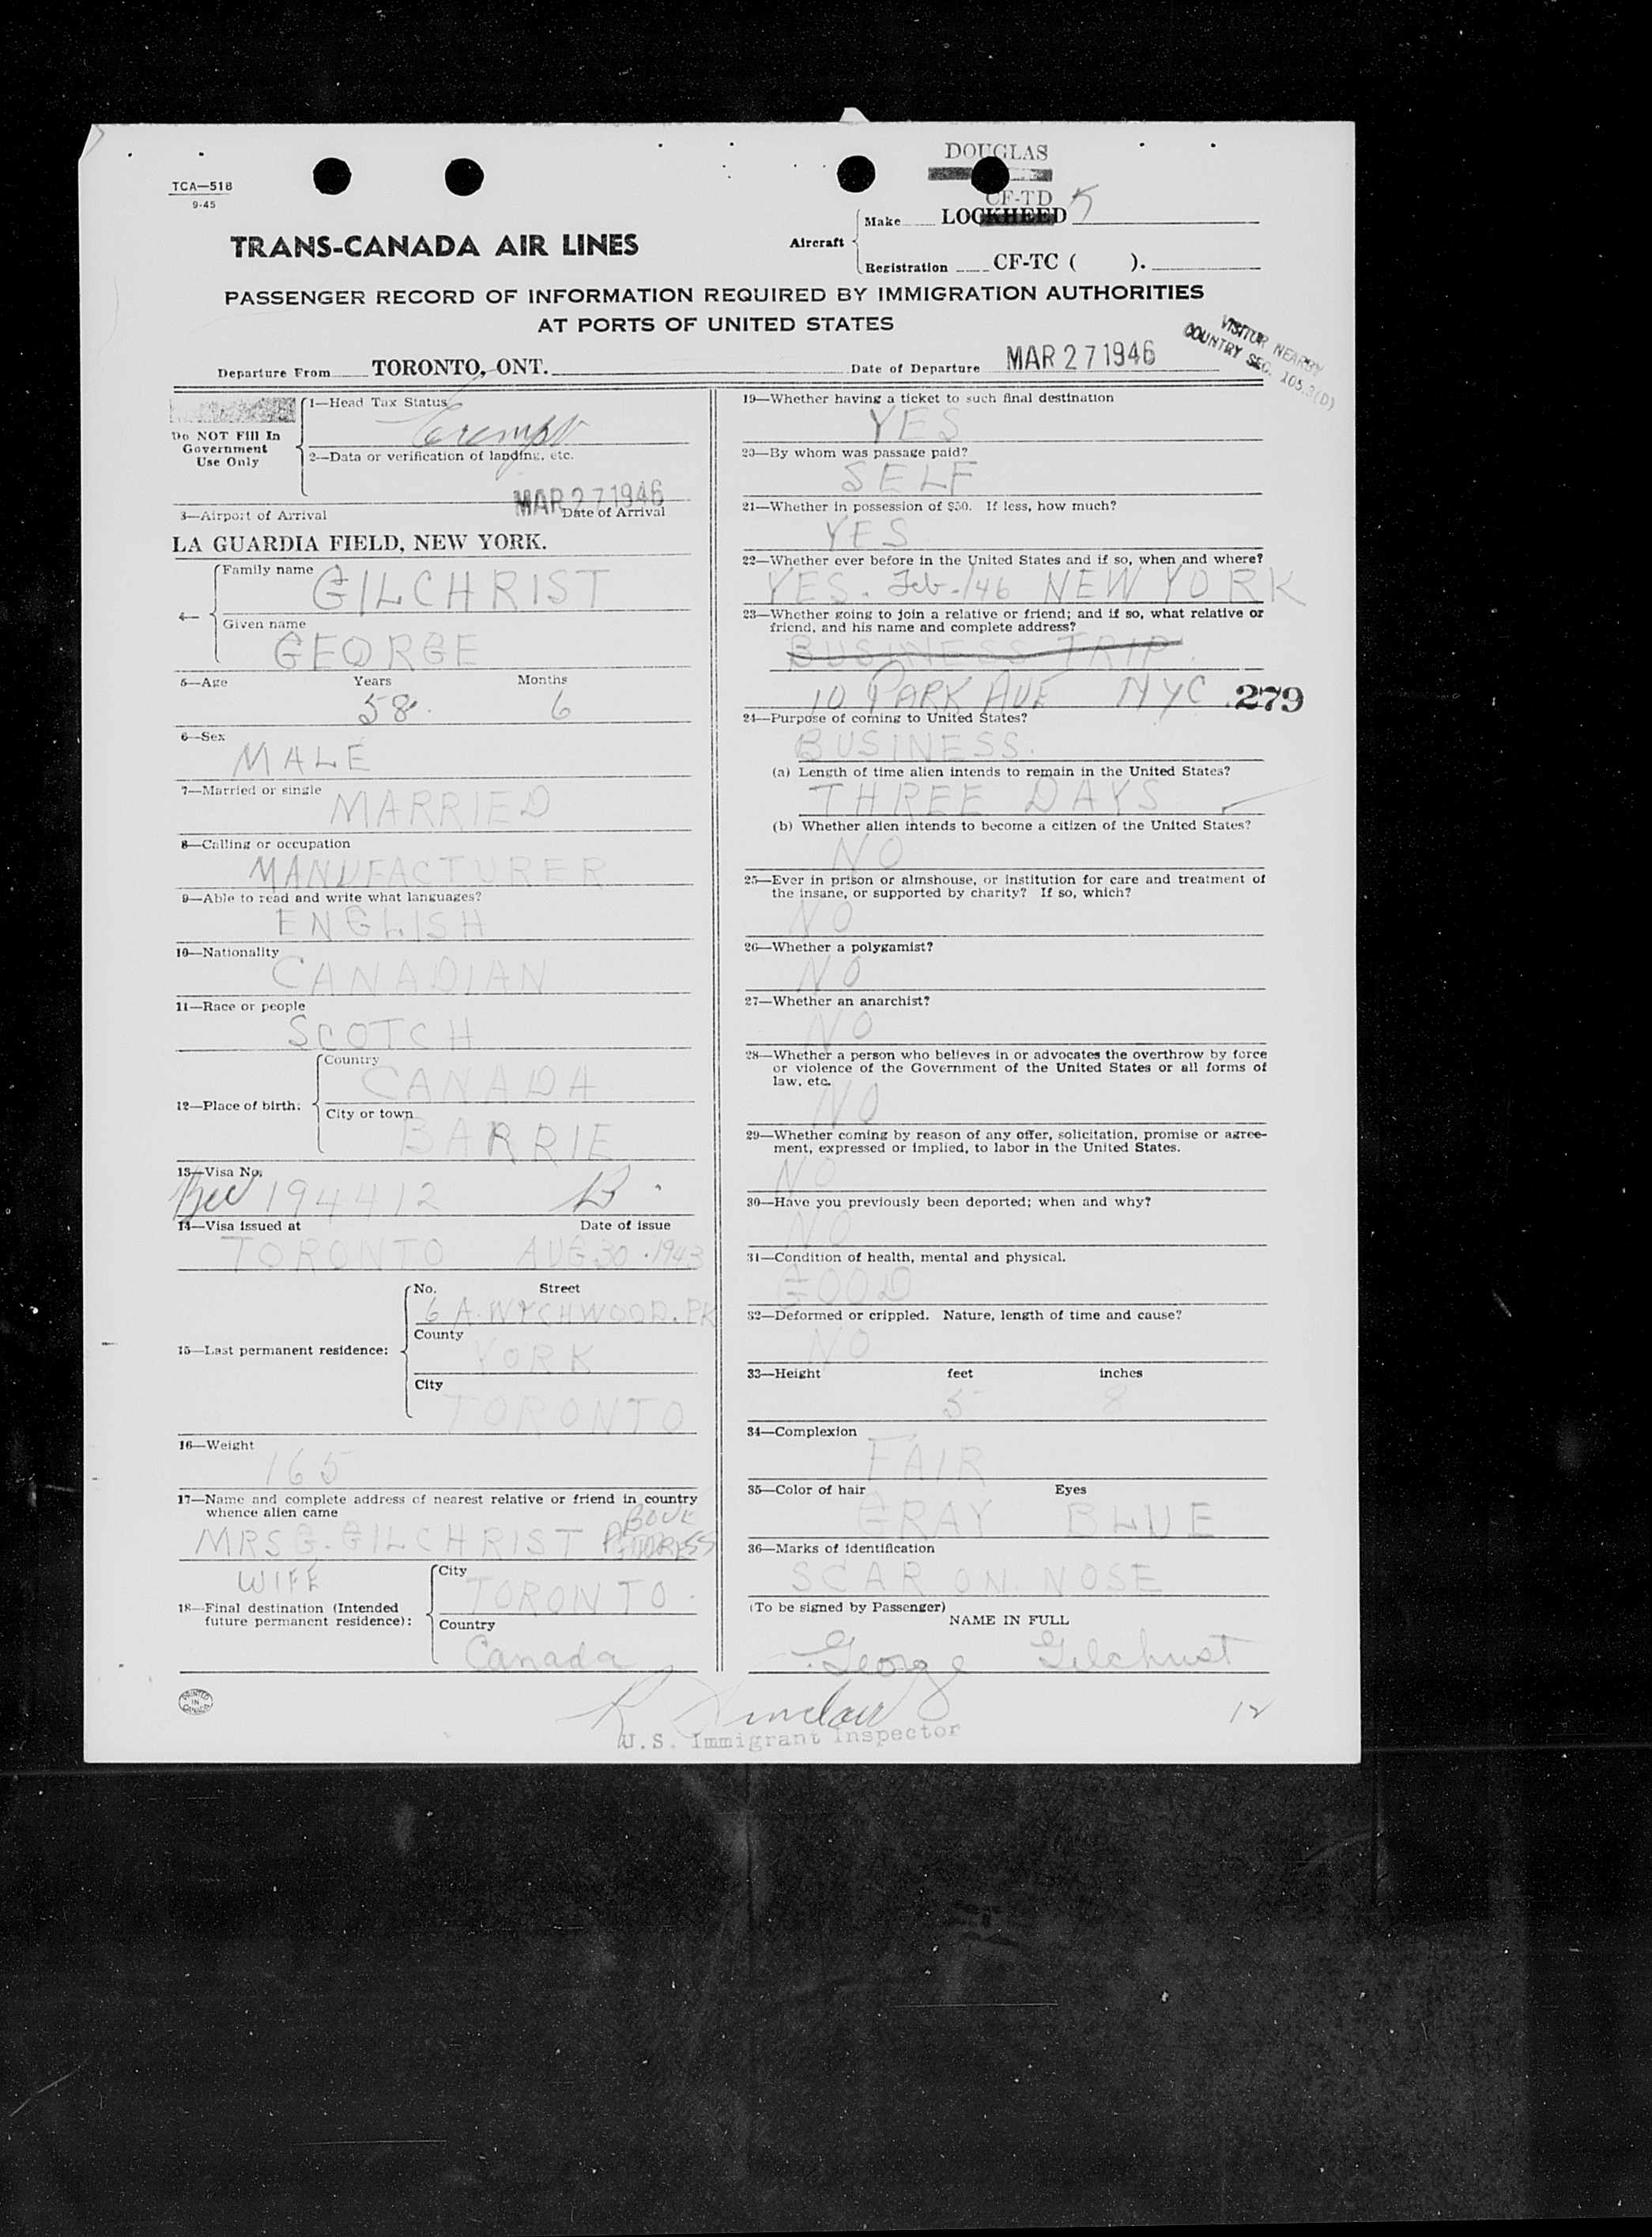 TCA—518
9-45
DOUGLAS
CF-TD K
Make LOCKHEED
Aircraft
Registration CF-TC ( ).
TRANS-CANADA AIR LINES
PASSENGER RECORD OF INFORMATION REQUIRED BY IMMIGRATION AUTHORITIES
AT PORTS OF UNITED STATES
VISITOR NEARBY
COUNTRY SEC. 105.3(D)
Departure From TORONTO, ONT. Date of Departure MAR 27 1946
Do NOT Fill In
Government
Use Only
1—Head Tax Status
Exempt
2—Data or verification of landing, etc.
MAR 27 1946
3—Airport of Arrival Date of Arrival
LA GUARDIA FIELD, NEW YORK.
Family name GILCHRIST
Given name
GEORGE
5—Age Years Months
58 6
6—Sex
MALE
7—Married or single MARRIED
8—Calling or occupation
MANUFACTURER
9—Able to read and write what languages?
ENGLISH
10—Nationality
CANADIAN
11—Race or people
SCOTCH
12—Place of birth:
Country
CANADA
City or town
BARRIE
13—Visa No.
194412 B
14—Visa issued at Date of issue
TORONTO AUG 30. 1943
15—Last permanent residence:
No. Street
6 A. WYCHWOOD. PK
County
YORK
City
TORONTO
16—Weight
165
17—Name and complete address of nearest relative or friend in country
whence alien came
MRS G. GILCHRIST ABOVE ADDRESS
WIFE
18—Final destination (Intended
future permanent residence):
City
TORONTO.
Country
Canada
PRINTED
IN
CANADA
19—Whether having a ticket to such final destination
YES
20—By whom was passage paid?
SELF
21—Whether in possession of $50. If less, how much?
YES
22—Whether ever before in the United States and if so, when and where?
YES. Feb-/46 NEW YORK
23—Whether going to join a relative or friend; and if so, what relative or
friend, and his name and complete address?
BUSINESS TRIP.
10 PARK AVE NYC 279
24—Purpose of coming to United States?
BUSINESS.
(a) Length of time alien intends to remain in the United States?
THREE DAYS
(b) Whether alien intends to become a citizen of the United States?
NO
25—Ever in prison or almshouse, or institution for care and treatment of
the insane, or supported by charity? If so, which?
NO
26—Whether a polygamist?
NO
27—Whether an anarchist?
NO
28—Whether a person who believes in or advocates the overthrow by force
or violence of the Government of the United States or all forms of
law, etc.
NO
29—Whether coming by reason of any offer, solicitation, promise or agree-
ment, expressed or implied, to labor in the United States.
NO
30—Have you previously been deported; when and why?
NO
31—Condition of health, mental and physical.
GOOD
32—Deformed or crippled. Nature, length of time and cause?
NO
33—Height feet inches
5 8
34—Complexion
FAIR
35—Color of hair Eyes
GRAY BLUE
36—Marks of identification
SCAR ON. NOSE
(To be signed by Passenger)
NAME IN FULL
George Gilchrist
R Sinclair
U.S. Immigrant Inspector
12